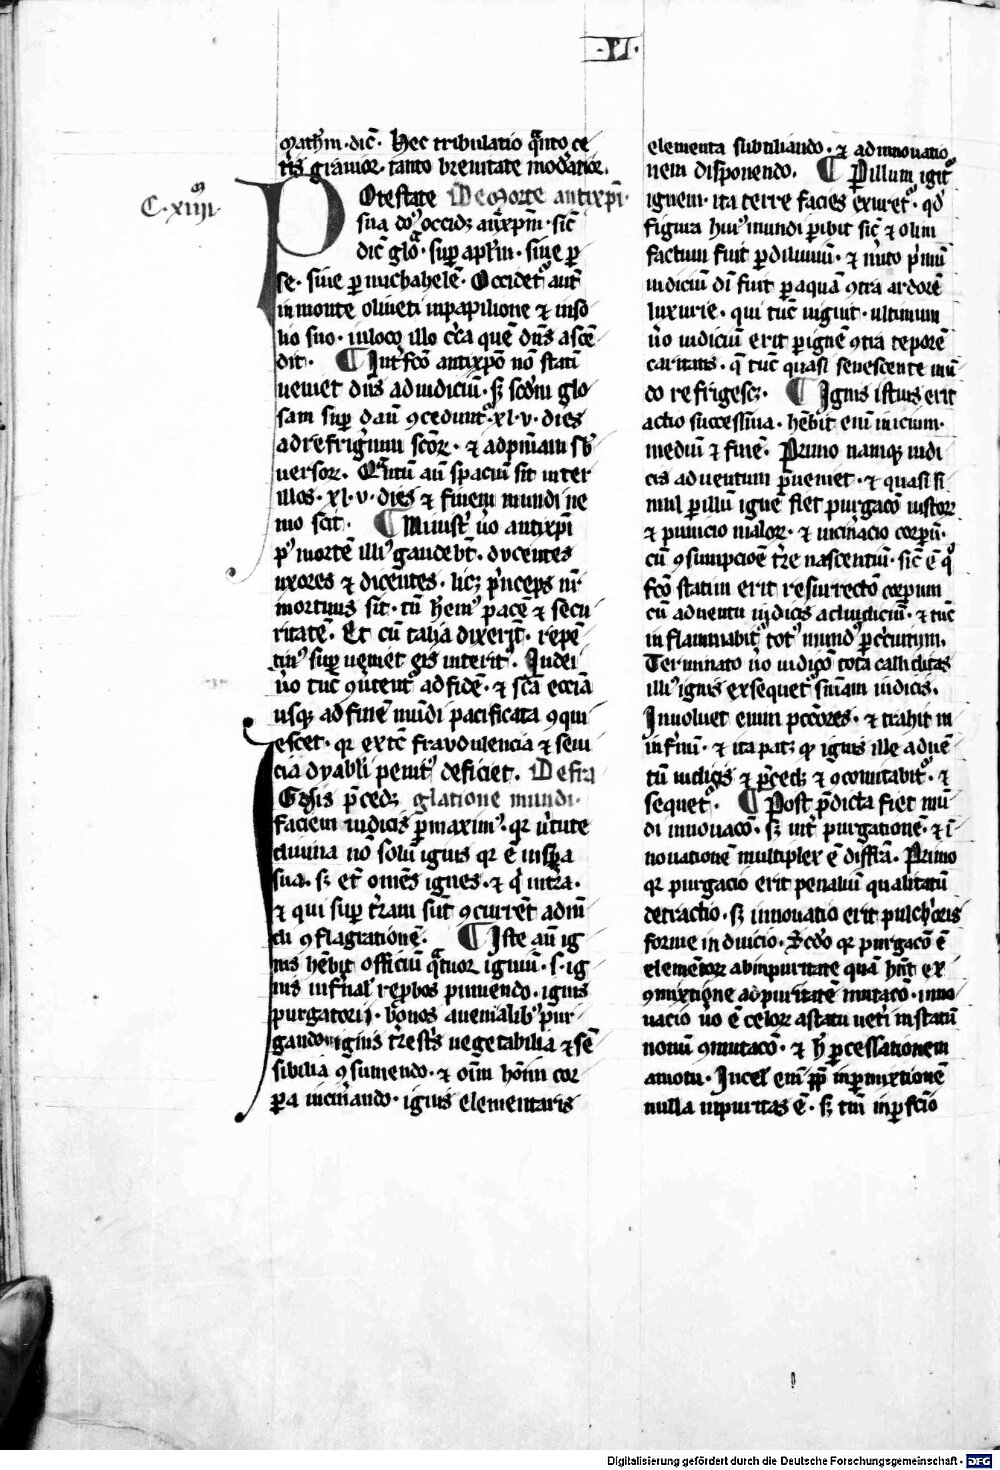 ·VI·
math'm · dic̄ · Hec tribulatio q̄nto ce
t'is grauior · tanto breuitate mod'atior.
C · xiiij
Potestate De morte antixp̄i ·
sua do⁹ occidꝫ antixp̄m · sic̄
dic̄ glo͛ · sup̄ apl'm · siue ꝑ
se · siue ꝑ michahelē · Occidet᷑ aut̄
in monte oliueti in papilione ⁊ in so
lio suo · in loco illo c̄ca quē dn̄s ascē
dit · ¶ Int'fc̄o antixp̄o nō stati
ueniet dn̄s ad iudiciū · sꝫ scd'm glo
sam sup̄ dañ ꝯcedunt᷑ · xl · v · dies
ad refrig'ium sc̄oꝝ · ⁊ ad pn̄iam sb'
uersoꝝ · Q̄ntū aū spaciū sit inter
illos · xl · v · dies ⁊ finem mundi ne
mo scit · ¶ Minist' u'o antixp̄i
p⁹ mortē illi⁹ gaudebt̄ · ducentes
uxores ⁊ dicentes · licꝫ p'nceps nr̄
mortuus sit · tn̄ hem⁹ pacē ⁊ secu
ritatē · Et cū talia dixerīt · repē
tin⁹ sup̄ueniet eis interit⁹ · Iudei
u'o tūc ꝯu'tent᷑ ad fidē · ⁊ sc̄a ecc̄ia
usqꝫ ad finē mūdi pacificata ꝯqui
escet · qꝛ extc̄ fraudulencia ⁊ seui
cia dyaboli penit⁹ deficiet · De fra
Ignis p̄cedꝫ glatione mundi ·
faciem iudicis ꝑmaxim⁹ · qꝛ u'tute
diuina nō solū ignis qꝛ ē in sp̄a
sua · sꝫ et̄ om̄es ignes · ⁊ q' int̄ra ·
⁊ qui sup̄ t'ram sūt ꝯcurrēt ad mū
di ꝯflagrationē · ¶ Iste aū ig
nis hēbit officiū q̄tuor igniū · s · ig
nis inf'nal' rep̄bos puniendo · ignis
purgatorij · bonos a uenialib⁹ pur
gando · ignis t'rest's uegetabilia ⁊ sē
sibilia ꝯsumendo · ⁊ oīm hom̄ cor
ꝑa incin'ando · ignis elementaris
elementa subtiliando · ⁊ ad innouatio
nem disponendo · ¶ Per illum igit᷑
ignem · ita terre facies exuret᷑ · qd'
figura hui⁹ mundi ꝑibit sic̄ ⁊ olim
factum fuit ꝑ diluuiū · ⁊ m'ito p'mū
iudiciū dī fuit ꝑ aquā ꝯtra ardorē
luxurie · qui tūc uiguit · ultimum
u'o iudiciū erit ꝑ ignē ꝯtra teporē
caritatis · q̄ tūc quasi senescente mū
do refrigescꝫ · ¶ Ignis istius erit
actio successiua · hēbit eni inicium ·
mediū ⁊ finē · Primo namqꝫ iudi
cis aduentum p̄ueniet · ⁊ quasi si
mul ꝑ illū ignē fiet purgac̄o iustoꝝ
⁊ punicio maloꝝ · ⁊ incin'acio corpm̄ ·
cū ꝯsumpcioē t're nascentiū · sic̄ ē q'
fc̄o statim erit resurrectō corpum
cū aduentu iudicis ad iudiciū · ⁊ tūc
inflammabit᷑ tot⁹ mund⁹ ꝑ circuitum ·
Terminato u'o iudic̄o tota calliditas
illi⁹ ignis exsequet᷑ sn̄iam iudicis ·
Inuoluet enim pcc̄ores · ⁊ trahit in
inf'nū · ⁊ ita patꝫ qꝫ ignis ille aduē
tū iudicis ⁊ p̄cedꝫ ⁊ ꝯcomitabit᷑ · ⁊
sequet᷑ · ¶ Post p̄dicta fiet mū
di innouac̄o · sꝫ int' purgationē · ⁊ ī
nouationē multiplex ē diffr̄a · Primo
qꝛ purgacio erit penaliū qualitatū
detractio · sꝫ innouatio erit pulch'oris
forme inducio · Sc̄do qꝛ purgac̄o ē
elemētoꝝ ab inpuritate quā hn̄t ex
ꝯmixtione ad puritatē mutac̄o · inno
uacio u'o ē celoꝝ a statu uet'i in statū
nouū ꝯmutac̄o · ⁊ h' ꝑ cessationem
a motu · In cel' em̄ ꝓp̄ inpermixtionē
nulla inpuritas ē · sꝫ tm̄ inperfc̄io
Digitalisierung gefördert durch die Deutsche Forschungsgemeinschaft - DFG